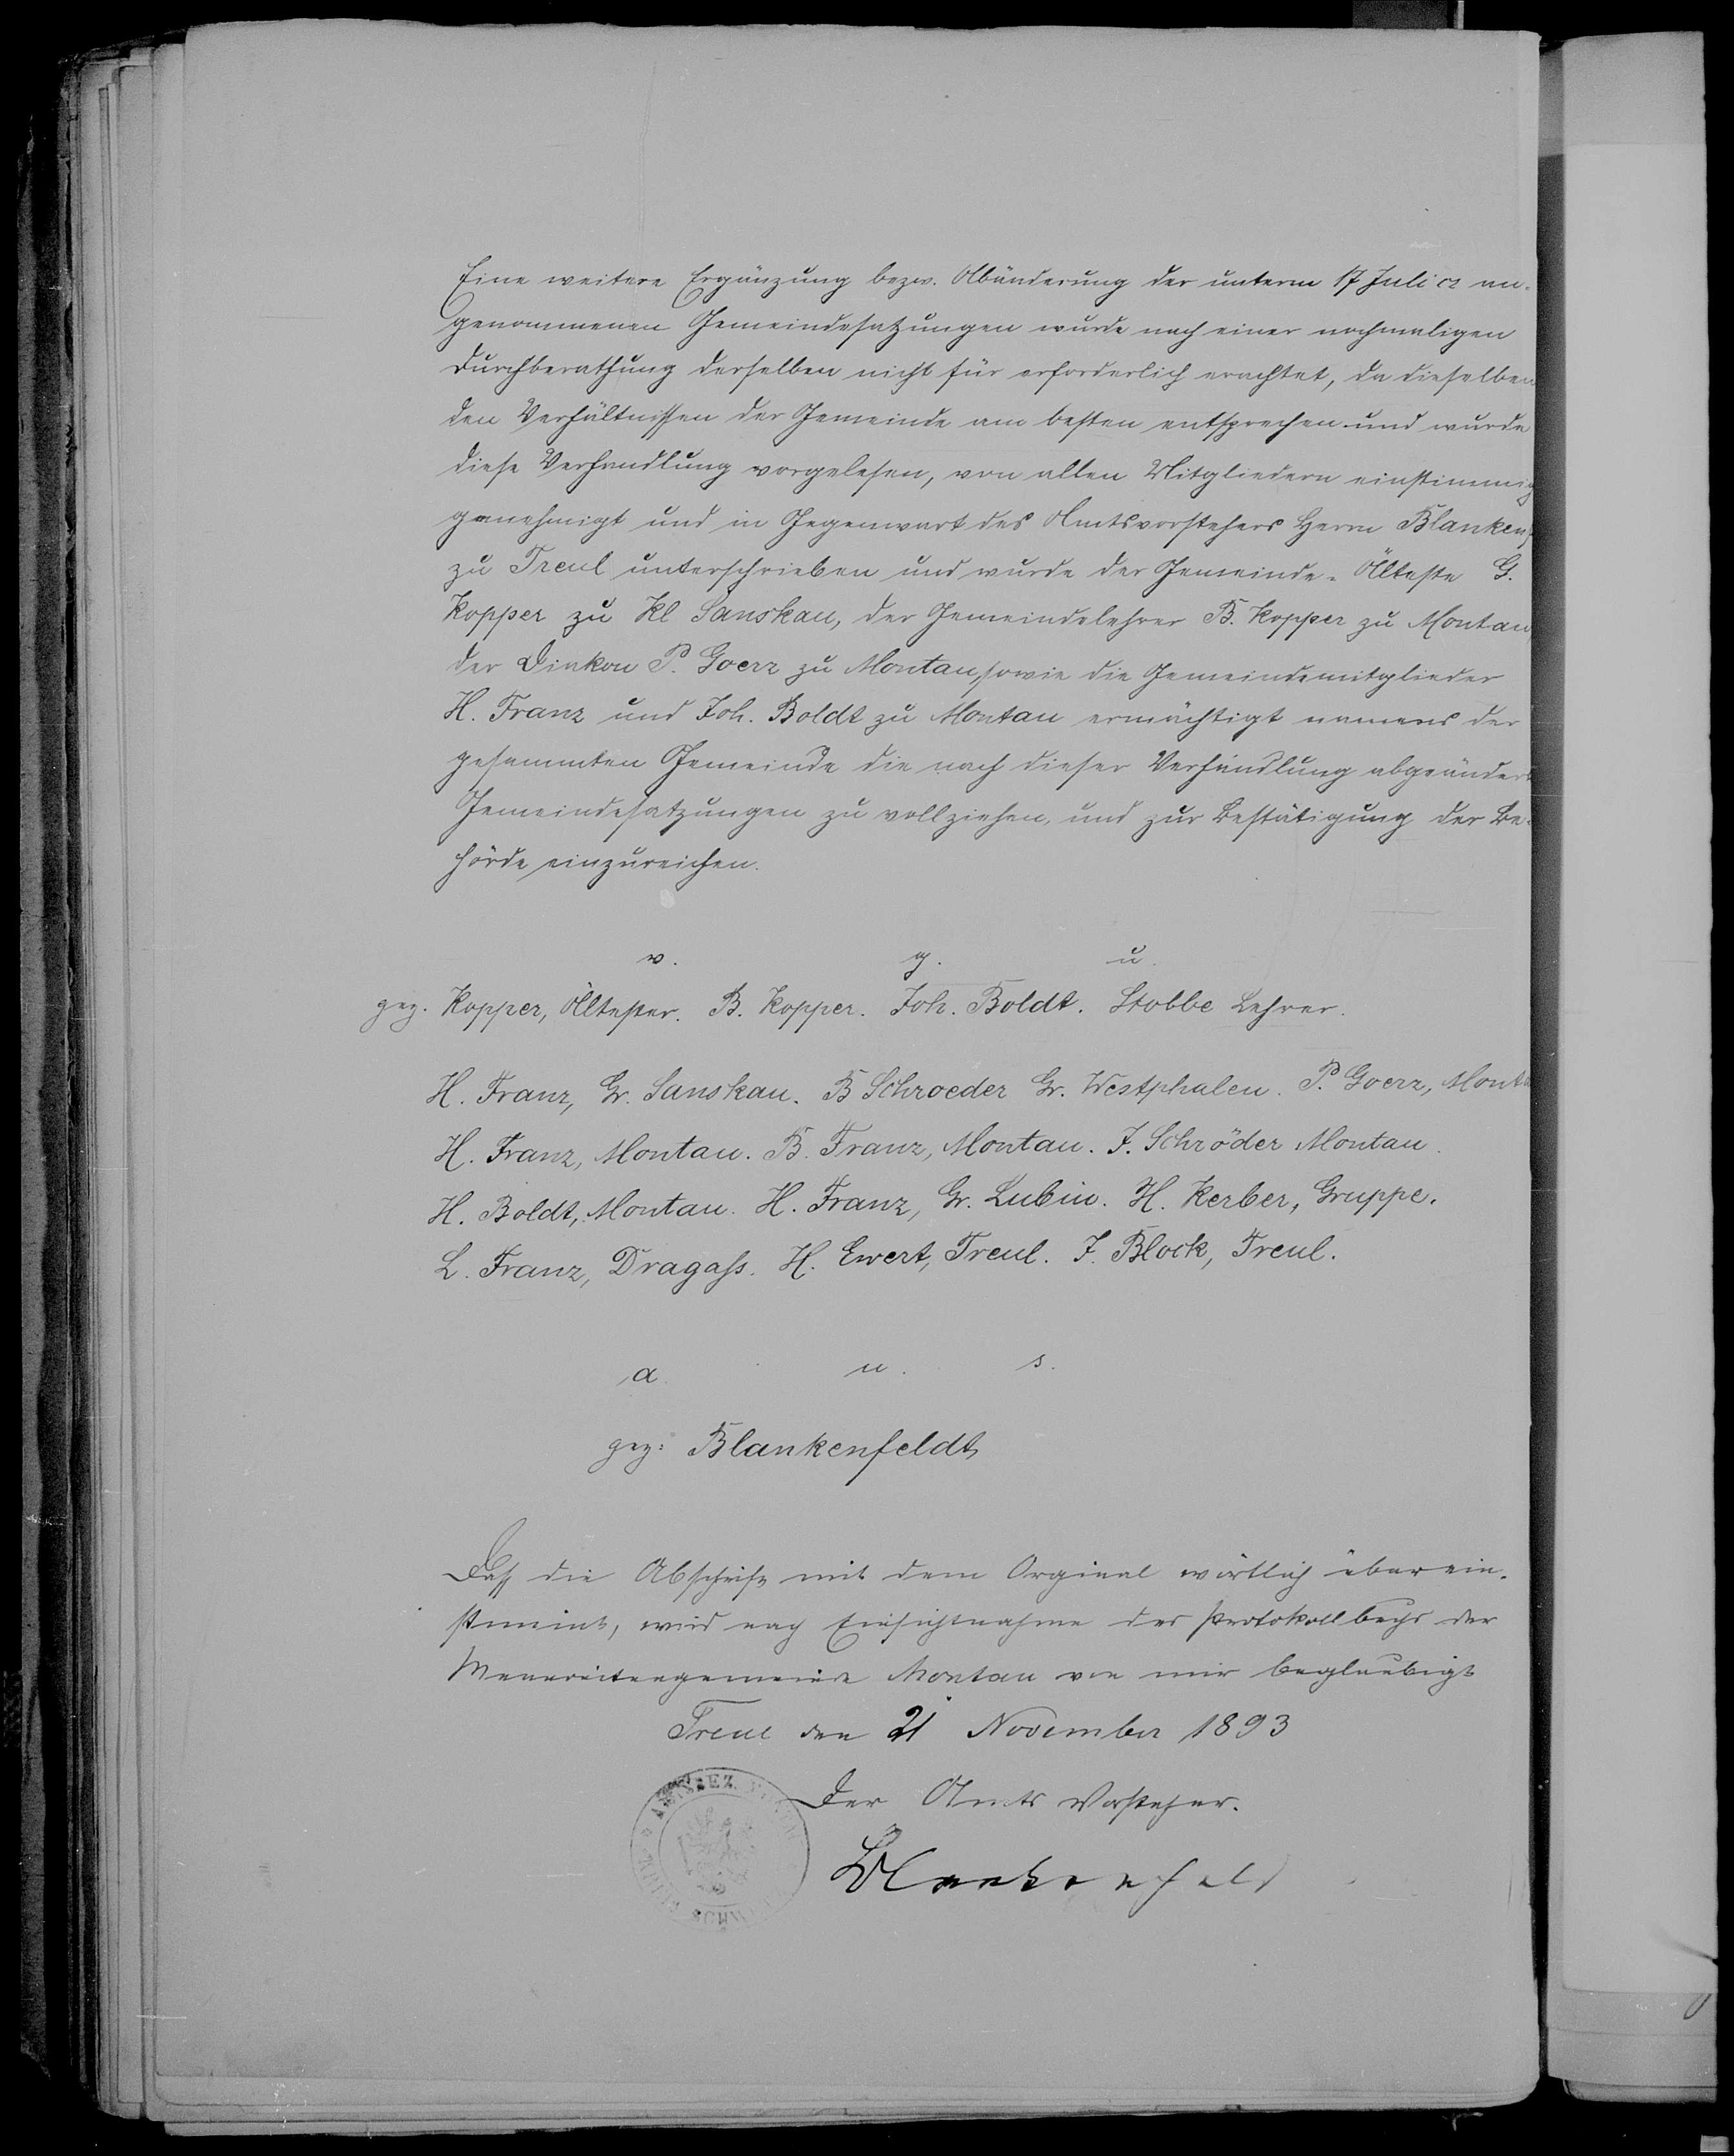 Eine weitere Ergänzung bezw. Abänderung der unterm 17 Juli cr an-
genommenen Gemeindesatzungen wurde nach einer nochmaligen
Durchberathung derselben nicht für erforderlich erachtet, da dieselben
den Verhältnissen der Gemeinde am besten entsprechen und wurde
diese Verhandlung vorgelesen, von allen Mitgliedern einstimmig
genehmigt und in Gegenwart des Amtsvorstehers Herrn Blankenf
zu Treul unterschrieben und wurde der Gemeinde-Älteste G.
Kopper zu Kl Sanskau, der Gemeindelehrer B. Kopper zu Montau,
der Diakon P. Goerz zu Montau, sowie die Gemeindemitglieder
H. Franz und Joh. Boldt zu Montau ermächtigt namens der
gesammten Gemeinde die nach dieser Verhandlung abgeändert
Gemeindesatzungen zu vollziehen, und zur Bestätigung der Be-
hörde einzureichen.
v. g. u.
gez. Kopper, Ältester. B. Kopper. Joh. Boldt. Stobbe Lehrer.
H. Franz, Gr. Sanskau. B Schroeder Gr. Westphalen. P. Goerz, Monta
H. Franz, Montau. B. Franz, Montau. J. Schröder Montau.
H. Boldt, Montau. H. Franz, Gr. Lubin. H. Kerber, Gruppe.
L. Franz, Dragass. H. Ewert, Treul. J. Block, Treul.
a. u. s.
gez: Blankenfeldt
Daß die Abschrift mit dem Orginal wörtlich überein-
stimmt, wird nach Einsichtnahme des Protokollbuchs der
Mennonitengemeinde Montau von mir beglaubigt
Treul den 21 November 1893
Der Amts Vorsteher.
Blankenfeld